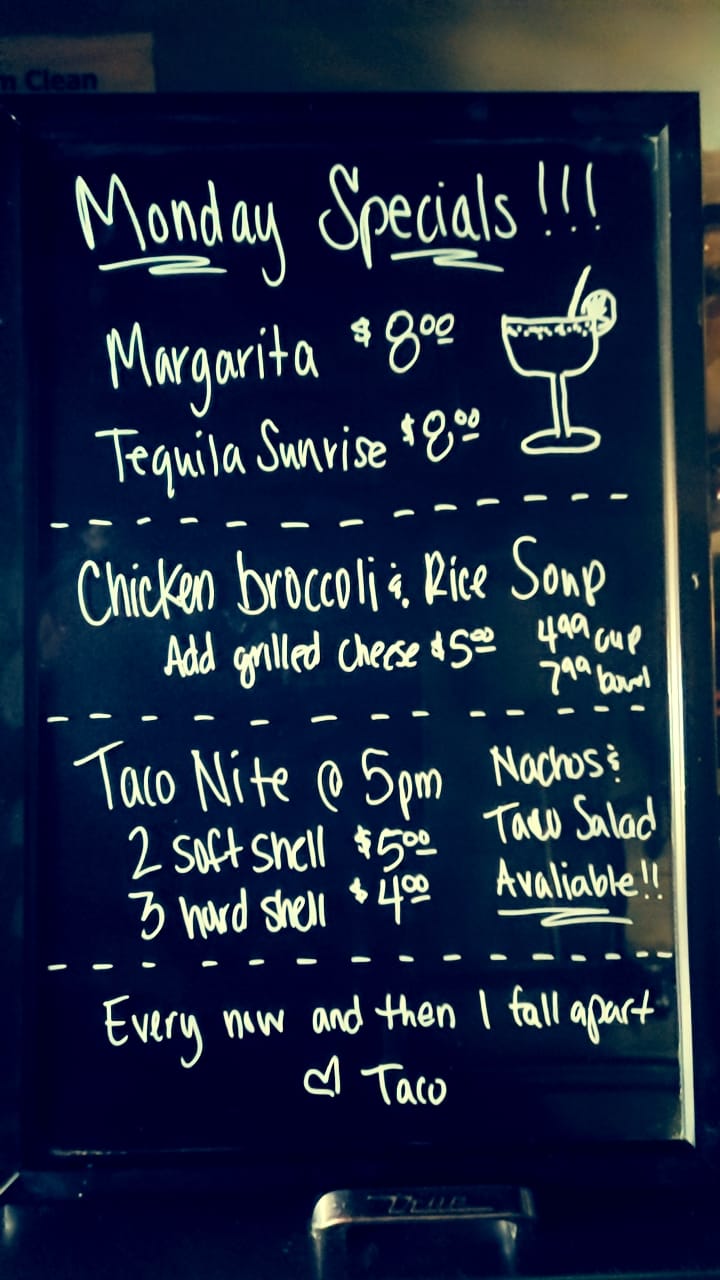 m Clean
Monday Specials!!!
Margarita $8.00
Tequila Sunrise $8.00
Chicken broccoli & Rice Soup
Add grilled cheese $5.00
4.99 cup
7.99 bowl
Taco Nite @ 5pm
2 soft shell $5.00
3 hard shell $4.00
Nachos &
Taco Salad
Avaliable!!
Every now and then I fall apart
♡ Taco
True